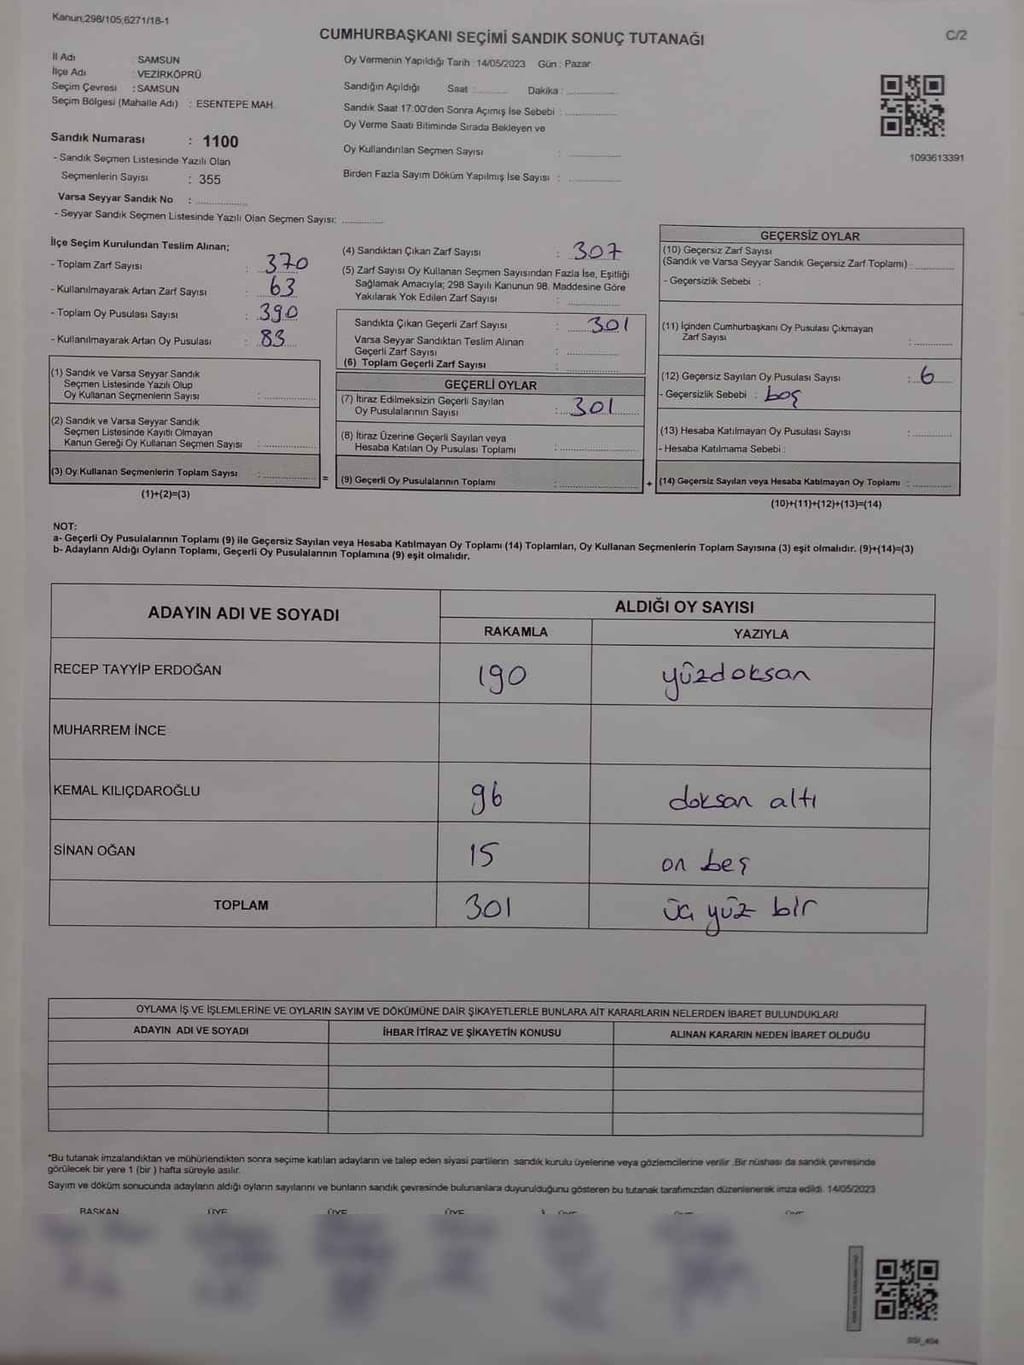 Kanun;298/105;6271/18-1
CUMHURBAŞKANI SEÇİMİ SANDIK SONUÇ TUTANAĞI
C/2
İl Adı SAMSUN
İlçe Adı : VEZİRKÖPRÜ
Seçim Çevresi : SAMSUN
Seçim Bölgesi (Mahalle Adı) : ESENTEPE MAH.
Oy Vermenin Yapıldığı Tarih : 14/05/2023 Gün : Pazar
Sandığın Açıldığı Saat : Dakika :
Sandık Saat 17:00'den Sonra Açılmış İse Sebebi :
Oy Verme Saati Bitiminde Sırada Bekleyen ve
Oy Kullandırılan Seçmen Sayısı :
Birden Fazla Sayım Döküm Yapılmış İse Sayısı :
1093613391
Sandık Numarası : 1100
- Sandık Seçmen Listesinde Yazılı Olan
Seçmenlerin Sayısı : 355
Varsa Seyyar Sandık No :
- Seyyar Sandık Seçmen Listesinde Yazılı Olan Seçmen Sayısı:
İlçe Seçim Kurulundan Teslim Alınan;
- Toplam Zarf Sayısı : 370
- Kullanılmayarak Artan Zarf Sayısı : 63
- Toplam Oy Pusulası Sayısı : 390
- Kullanılmayarak Artan Oy Pusulası : 83
(1) Sandık ve Varsa Seyyar Sandık
Seçmen Listesinde Yazılı Olup
Oy Kullanan Seçmenlerin Sayısı :
(2) Sandık ve Varsa Seyyar Sandık
Seçmen Listesinde Kayıtlı Olmayan
Kanun Gereği Oy Kullanan Seçmen Sayısı :
(3) Oy Kullanan Seçmenlerin Toplam Sayısı :
(1)+(2)=(3)
=
(4) Sandıktan Çıkan Zarf Sayısı : 307
(5) Zarf Sayısı Oy Kullanan Seçmen Sayısından Fazla İse, Eşitliği
Sağlamak Amacıyla; 298 Sayılı Kanunun 98. Maddesine Göre
Yakılarak Yok Edilen Zarf Sayısı :
Sandıkta Çıkan Geçerli Zarf Sayısı : 301
Varsa Seyyar Sandıktan Teslim Alınan
Geçerli Zarf Sayısı :
(6) Toplam Geçerli Zarf Sayısı :
GEÇERLİ OYLAR
(7) İtiraz Edilmeksizin Geçerli Sayılan
Oy Pusulalarının Sayısı : 301
(8) İtiraz Üzerine Geçerli Sayılan veya
Hesaba Katılan Oy Pusulası Toplamı :
(9) Geçerli Oy Pusulalarının Toplamı :
+
GEÇERSİZ OYLAR
(10) Geçersiz Zarf Sayısı
(Sandık ve Varsa Seyyar Sandık Geçersiz Zarf Toplamı) :
- Geçersizlik Sebebi :
(11) İçinden Cumhurbaşkanı Oy Pusulası Çıkmayan
Zarf Sayısı :
(12) Geçersiz Sayılan Oy Pusulası Sayısı : 6
- Geçersizlik Sebebi : boş
(13) Hesaba Katılmayan Oy Pusulası Sayısı :
- Hesaba Katılmama Sebebi :
(14) Geçersiz Sayılan veya Hesaba Katılmayan Oy Toplamı :
(10)+(11)+(12)+(13)=(14)
NOT:
a- Geçerli Oy Pusulalarının Toplamı (9) ile Geçersiz Sayılan veya Hesaba Katılmayan Oy Toplamı (14) Toplamları, Oy Kullanan Seçmenlerin Toplam Sayısına (3) eşit olmalıdır. (9)+(14)=(3)
b- Adayların Aldığı Oyların Toplamı, Geçerli Oy Pusulalarının Toplamına (9) eşit olmalıdır.
ADAYIN ADI VE SOYADI ALDIĞI OY SAYISI
RAKAMLA YAZIYLA
RECEP TAYYİP ERDOĞAN 190 yüzdoksan
MUHARREM İNCE
KEMAL KILIÇDAROĞLU 96 doksan altı
SİNAN OĞAN 15 on beş
TOPLAM 301 üç yüz bir
OYLAMA İŞ VE İŞLEMLERİNE VE OYLARIN SAYIM VE DÖKÜMÜNE DAİR ŞİKAYETLERLE BUNLARA AİT KARARLARIN NELERDEN İBARET BULUNDUKLARI
ADAYIN ADI VE SOYADI İHBAR İTİRAZ VE ŞİKAYETİN KONUSU ALINAN KARARIN NEDEN İBARET OLDUĞU
*Bu tutanak imzalandıktan ve mühürlendikten sonra seçime katılan adayların ve talep eden siyasi partilerin sandık kurulu üyelerine veya gözlemcilerine verilir. Bir nüshası da sandık çevresinde
görülecek bir yere 1 (bir ) hafta süreyle asılır.
Sayım ve döküm sonucunda adayların aldığı oyların sayılarını ve bunların sandık çevresinde bulunanlara duyurulduğunu gösteren bu tutanak tarafımızdan düzenlenerek imza edildi. 14/05/2023
BAŞKAN ÜYE ÜYE ÜYE ÜYE